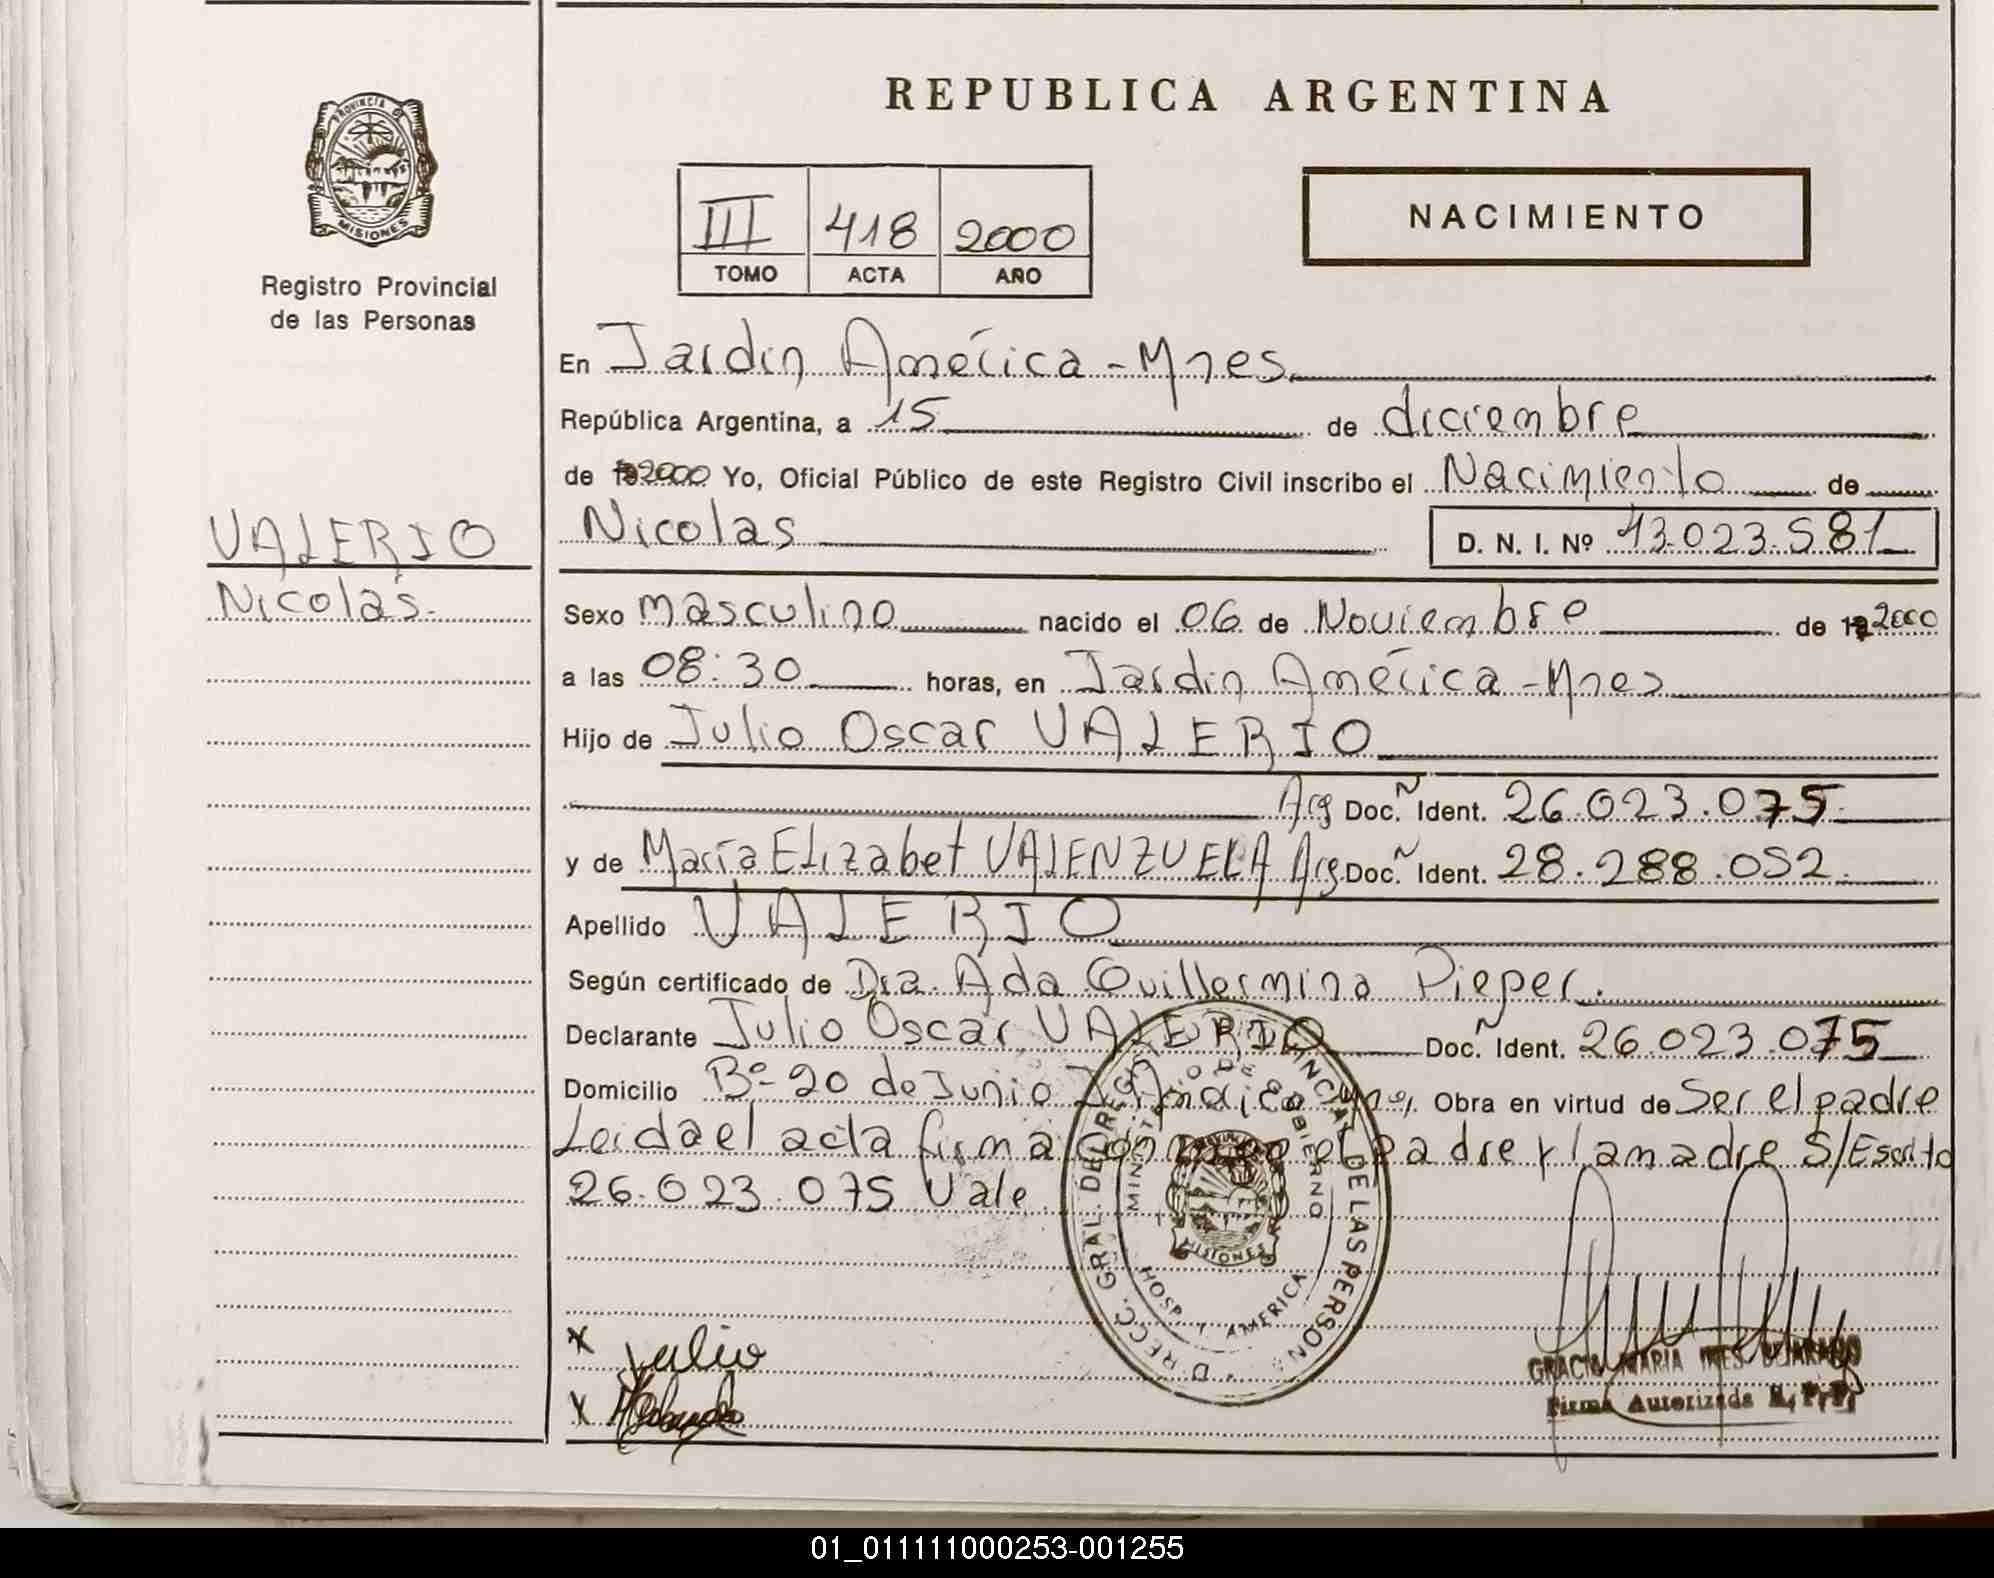 REPUBLICA ARGENTINA
PROVINCIA DE
MISIONES
Registro Provincial
de las Personas
III 418 2000
TOMO ACTA AÑO
NACIMIENTO
En Jardín América - Mnes.
República Argentina, a 15 de diciembre
de 2000 Yo, Oficial Público de este Registro Civil inscribo el Nacimiento de
Nicolas D. N. I. Nº 43.023.581
VALERIO
Nicolás.
Sexo masculino nacido el 06 de Noviembre de 2000
a las 08:30 horas, en Jardín América - Mnes
Hijo de Julio Oscar VALERIO
Arg Doc. Ident. 26.023.075
y de María Elizabet VALENZUELA Arg Doc. Ident. 28.288.052.
Apellido VALERIO
Según certificado de Dra. Ada Guillermina Pieper.
Declarante Julio Oscar VALERIO Doc. Ident. 26.023.075
Domicilio Bº 20 de Junio J. América Mnes. Obra en virtud de Ser el padre
Leida el acta firma conmigo el padre y la madre S/Escrito
26.023.075 Vale
DIRECC. GRAL. DEL REG. PROVINCIAL DE LAS PERSONAS
MINISTERIO DE GOBIERNO
MISIONES
HOSP. AMERICA
X Julio
X
GRACIA MARIA INES
Firma Autorizada R.P.P.
01_011111000253-001255